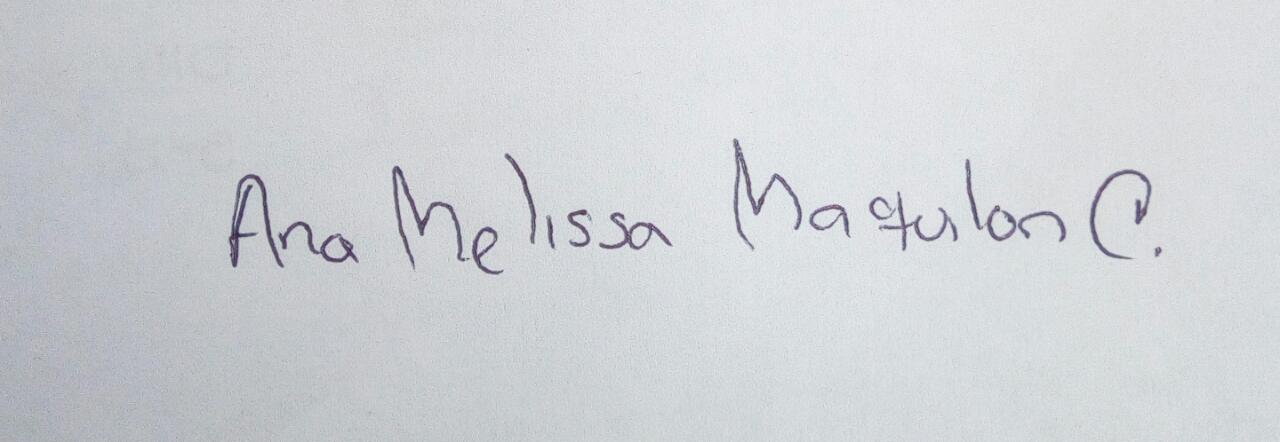 Ana Melissa Maqulon C.